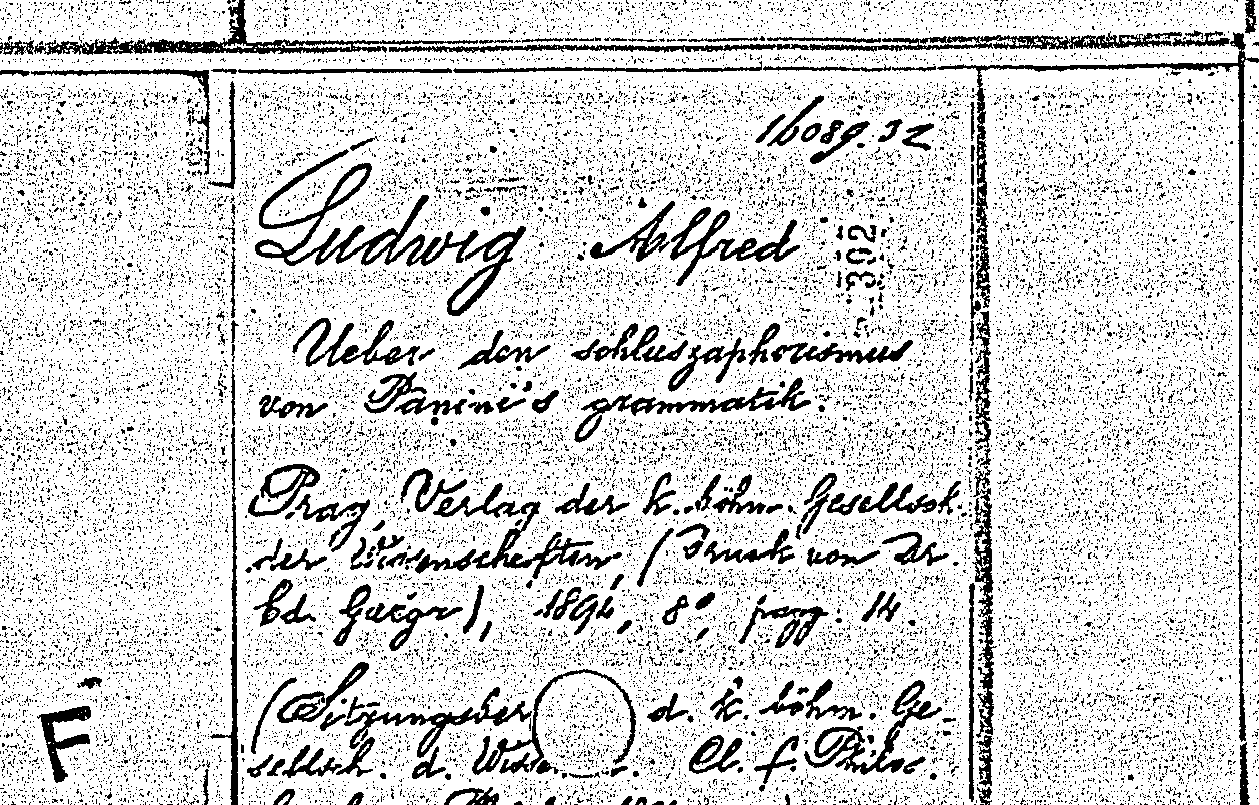 16089.32
Ludwig Alfred
392
Ueber den schluszaphorismus
von Pāṇini's grammatik.
Prag, Verlag der k. böhm. Gesellsch.
der Wissenschaften, (Druck von Dr.
Ed. Grégr), 1894, 8°, pagg. 14.
(Sitzungsber d. k. böhm. Ge-
sellsch. d. Wiss. Cl. f. Philos.
F